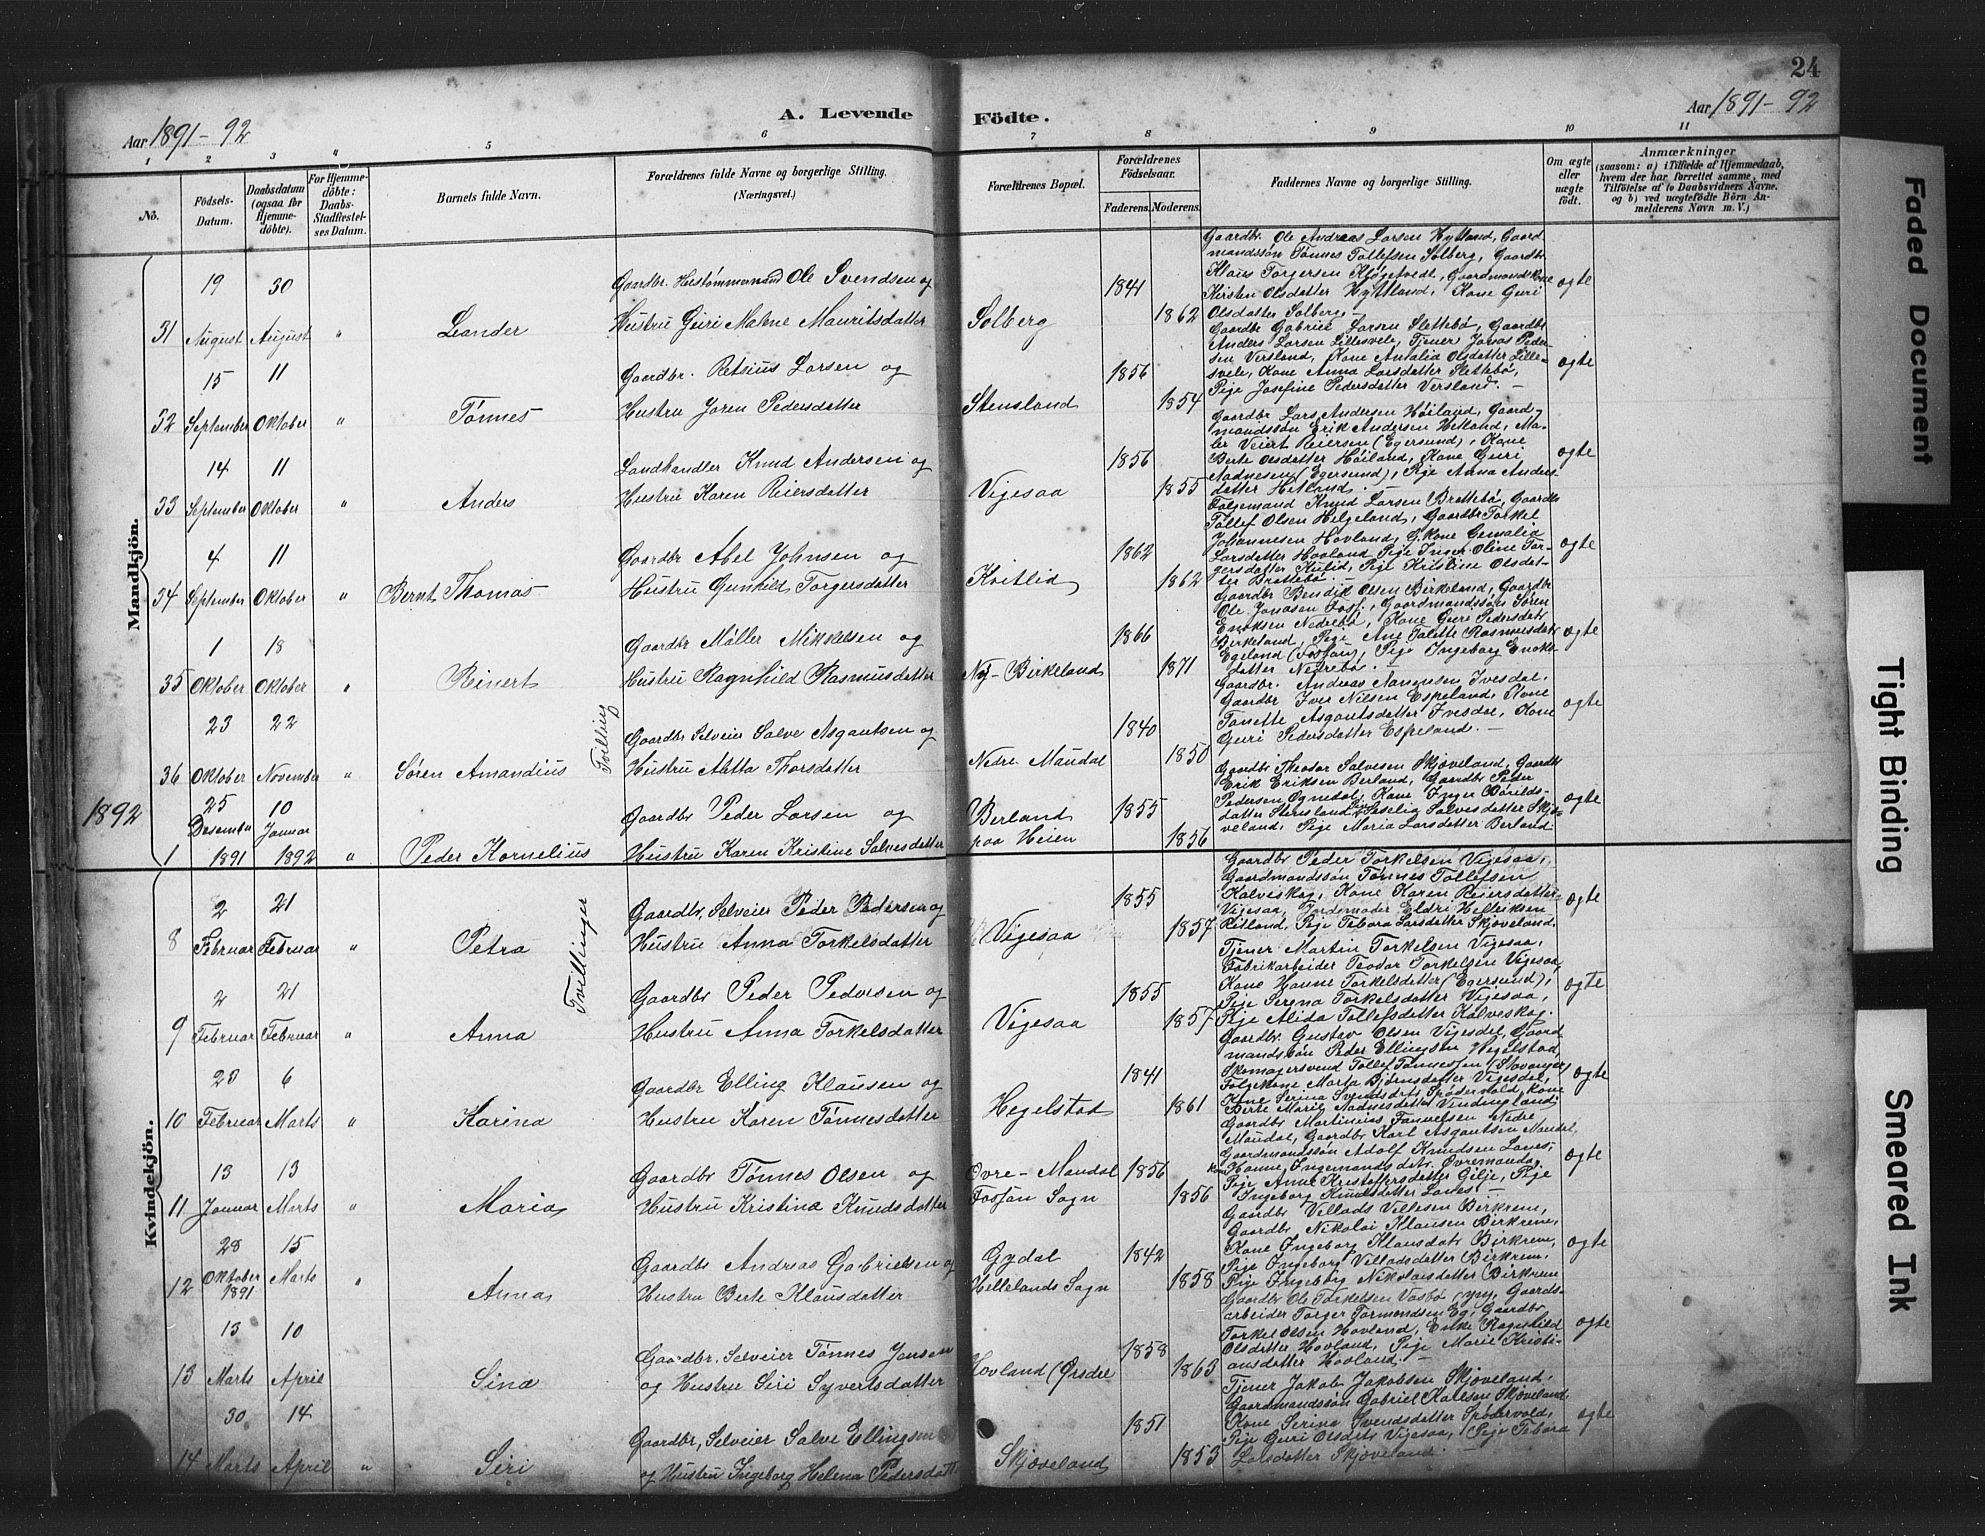 24
Aar 1891-92
A. Levende Födte.
Aar 1891-92
1 2 3 4 5 6 7 8 9 10 11
No.
Födsels-Datum.
Daabsdatum (ogsaa for Hjemme-döbte).
For Hjemme-döbte: Daabs-Stadfæstel-ses Datum.
Barnets fulde Navn.
Forældrenes fulde Navne og borgerlige Stilling.
(Næringsvei.)
Forældrenes Bopæl.
Forældrenes Födselsaar.
Faderens.
Moderens.
Faddernes Navne og borgerlige Stilling.
Om ægte eller uægte födt.
Anmærkninger
(saasom: a) i Tilfælde af Hjemmedaab, hvem der har forrettet samme, med Tilföielse af to Daabsvidners Navne, og b) ved uægtefödte Börn An-melderens Navn m. V.)
Mandkjön.
31 19 August 30 August " Leander
Gaardbr. Hustømmermand Ole Svendsen og
Hustru Guri Malene Mauritsdatter
Solberg 1841 1862
Gaardbr. Ole Andreas Larsen Hytland, Gaard-
mandssøn Tønnes Tollefsen Solberg, Gaardbr
Klaus Torgersen Kløgetvedt, Gaardmandskone
Kirsten Olsdatter Hytland, Kone Guri
Olsdatter Solberg.
ægte
32 15 September 11 Oktober " Tønnes
Gaardbr. Retsius Larsen og
Hustru Joren Pedersdatter
Stensland 1856 1854
Gaardbr Gabriel Larsen Slettebø, Gaardbr
Anders Larsen Lillesvele, Tjener Jonas Peder-
sen Versland, Kone Amalia Olsdatter Lille-
svele, Kone Anna Larsdatter Slettebø,
Pige Josefine Pedersdatter Versland. —
ægte
33 14 September 11 Oktober " Anders
Landhandler Knud Andersen og
Hustru Karen Reiersdatter
Vigesaa 1856 1855
Gaardbr Lars Andersen Høiland, Gaard-
mandssøn Erik Andersen Hetland, Ma-
ler Veiert Reiersen (Egersund), Kone
Berte Olsdatter Høiland, Kone Guri
Aadnesen (Egersund), Pige Anna Anders-
datter Hetland.
ægte
34 4 September 11 Oktober " Bernt Thomas
Gaardbr Abel Johnsen og
Hustru Gunhild Torgersdatter
Kvitlid 1862 1862
Folgemand Knud Larsen Brattebø, Gaardbr
Tollef Olsen Helgeland, Gaardbr Torkel
Johannesen Hovland, G.kone Gemalia
Larsdatter Hovland, Pige Inger Oline Tor-
gersdatter Kvlid, Pige Kristine Olsdat-
ter Brattebø. —
ægte
35 1 Oktober 18 Oktober " Reinert
Gaardbr Møller Mikkelsen og
Hustru Ragnhild Rasmusdatter
Ny-Birkeland 1866 1871
Gaardbr Bendik Olsen Birkeland, Gaardbr
Ole Jonasen Fosf., Gaardmandssøn Søren
Enoksen Nedrebø, Kone Guri Pedersdatr
Birkeland, Pige Ane Talette Rasmusdatr
Egeland (Fossan), Pige Ingeborg Enoks-
datter Nedrebø. —
ægte
36 23 Oktober 22 November " Søren Amandius
Tvilling
Gaardbr Selveier Salve Asgautsen og
Hustru Aatta Thorsdatter
Nedre Maudal 1840 1850
Gaardbr. Andreas Aanensen Ivesdal,
Gaardbr Iver Nilsen Espeland, Kone
Tonette Asgautsdatter Ivesdal, Kone
Guri Pedersdatter Espeland. —
ægte
1892
1 25 Desember 1891 10 Januar 1892 " Peder Kornelius
Gaardbr Peder Larsen og
Hustru Karen Kristine Salvesdatter
Berland paa Heien 1855 1856
Gaardbr Theodor Salvesen Skjæveland, Gaardbr
Erik Eriksen Berland, Gaardbr Peder
Pedersen Ognedal, Kone Inger Bårilds-
datter Stensland, Pige Seselia Salvesdatter Skjæ-
veland, Pige Maria Larsdatter Berland
ægte
Kvindekjön.
8 2 Februar 21 Februar " Petra
Tvillinger
Gaardbr. Selveier Peder Pedersen og
Hustru Anna Torkelsdatter
Vigesaa 1855 1857
Gaardbr Peder Torkelsen Vigesaa,
Gaardmandssøn Tønnes Tollefsen
Kalveskag, Kone Karen Reiersdatter
Vigesaa, Jordemoder Eldri Helliksen
Ritland, Pige Tebora Larsdatter Skjæveland.
ægte
9 2 Februar 21 Februar " Anna
Gaardbr Peder Pedersen og
Hustru Anna Torkelsdatter
Vigesaa 1855 1857
Tjener Martin Torkelsen Vigesaa,
Fabrikarbeider Teodor Torkelsen Vigesaa,
Kone Hanne Torkelsdatter (Egersund),
Pige Serena Torkelsdatter Vigesaa,
Pige Alida Tollefsdatter Kalveskag.
ægte
10 23 Februar 6 Marts " Karina
Gaardbr Elling Klausen og
Hustru Karen Tønnesdatter
Hegelstad 1841 1861
Gaardbr. Gustav Olsen Vigesdal, Gaard-
mandssøn Peder Ellingsen Hegelstad,
Skomagersvend Tollef Tønnessen (Stavanger)
Folgekone Marta Bjørnsdatter Vigesdal,
Kone Serina Svendsdatr Spødervold, Kone
Berte Marie Aadnesdatter Vindingland.
ægte
11 13 Januar 13 Marts " Maria
Gaardbr Tønnes Olsen og
Hustru Kristina Knudsdatter
Øvre-Maudal Fossan Sogn 1856 1856
Gaardbr Martinius Tanresen Nedre
Maudal, Gaardbr Karl Asgautsen Maudal,
Gaardmandssøn Adolf Knudsen Lanes,
Kone Hanne Ingemandsdatr. Øvremaudal
Pige Anne Kristoffersdatter Gilje, Pige
Ingeborg Knudsdatter Lanes. —
ægte
12 28 Oktober 1891 15 Marts " Anna
Gaardbr Andreas Gabrielsen og
Hustru Berte Klausdatter
Gydal Hellelands Sogn 1842 1858
Gaardbr Villads Villesen Birkrem,
Gaardbr Nikolai Klausen Birkrem,
Kone Ingeborg Klausdatr Birkrem,
Pige Ingeborg Villadsdatter Birkrem,
Pige Ingeborg Nikolaisdatter Birkrem
ægte
13 13 Marts 10 April Sina
Gaardbr. Selveier Tønnes Jansen
og Hustru Siri Syvertsdatter
Hovland (Ørsdal 1858 1863
Gaardbr Ole Torkelsen Vasbø, Gaards-
arbeider Torger Tormondsen Eg, Gaardbr
Torkel Olsen Hovland, Enke Ragnhild
Olsdatter Hovland, Pige Marie Kristi-
ansdatter Hovland. —
ægte
14 30 Marts 14 April " Siri
Gaardbr, Selveier Salve Ellingsen
og Hustru Ingeborg Helena Pedersdatt
Skjæveland 1851 1853
Tjener Jakob Jakobsen Skjæveland,
Gaardmandssøn Gabriel Karlsen Skjæveland,
Kone Serina Svendsdatter Spødervold,
Pige Guri Olsdatr Vigesaa, Pige Tebora
Larsdatter Skjæveland. —
ægte
Faded Document
Tight Binding
Smeared Ink